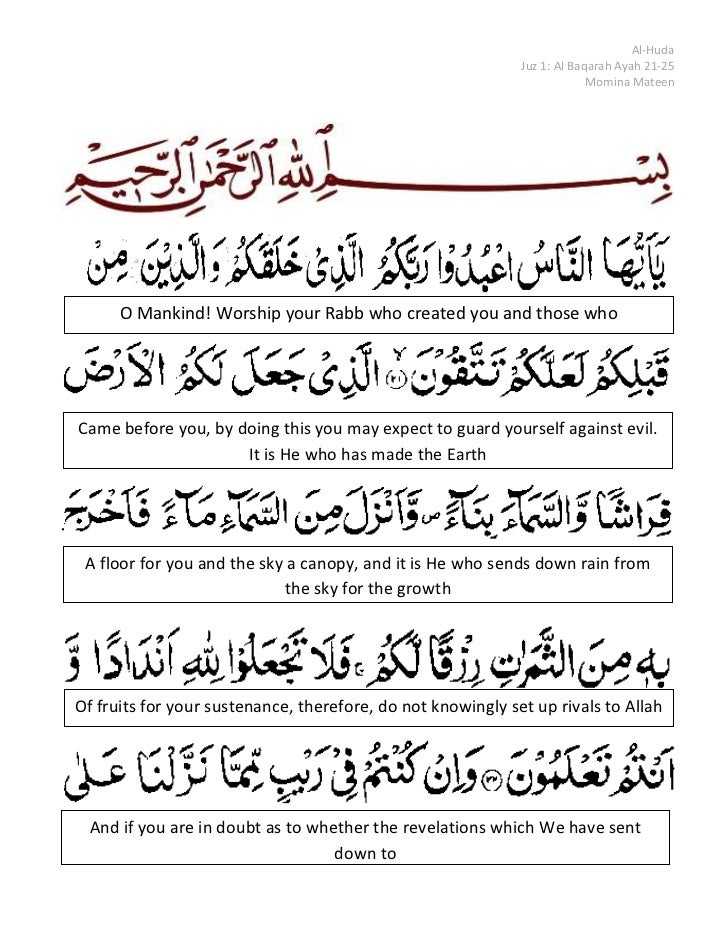 Al-Huda
Juz 1: Al Baqarah Ayah 21-25
Momina Mateen
بِسْمِ اللهِ الرَّحْمٰنِ الرَّحِيْمِ
يٰٓاَيُّهَا النَّاسُ اعْبُدُوْا رَبَّكُمُ الَّذِيْ خَلَقَكُمْ وَالَّذِيْنَ مِنْ
O Mankind! Worship your Rabb who created you and those who
قَبْلِكُمْ لَعَلَّكُمْ تَتَّقُوْنَ ۙ﴿۲۱﴾ الَّذِيْ جَعَلَ لَكُمُ الْاَرْضَ
Came before you, by doing this you may expect to guard yourself against evil.
It is He who has made the Earth
فِرَاشًا وَّالسَّمَآءَ بِنَآءً ۪ وَّاَنْزَلَ مِنَ السَّمَآءِ مَآءً فَاَخْرَجَ
A floor for you and the sky a canopy, and it is He who sends down rain from
the sky for the growth
بِهٖ مِنَ الثَّمَرٰتِ رِزْقًا لَّكُمْ ۚ فَلَا تَجْعَلُوْا لِلهِ اَنْدَادًا وَّ
Of fruits for your sustenance, therefore, do not knowingly set up rivals to Allah
اَنْتُمْ تَعْلَمُوْنَ ﴿۲۲﴾ وَاِنْ كُنْتُمْ فِيْ رَيْبٍ مِّمَّا نَزَّلْنَا عَلٰى
And if you are in doubt as to whether the revelations which We have sent
down to